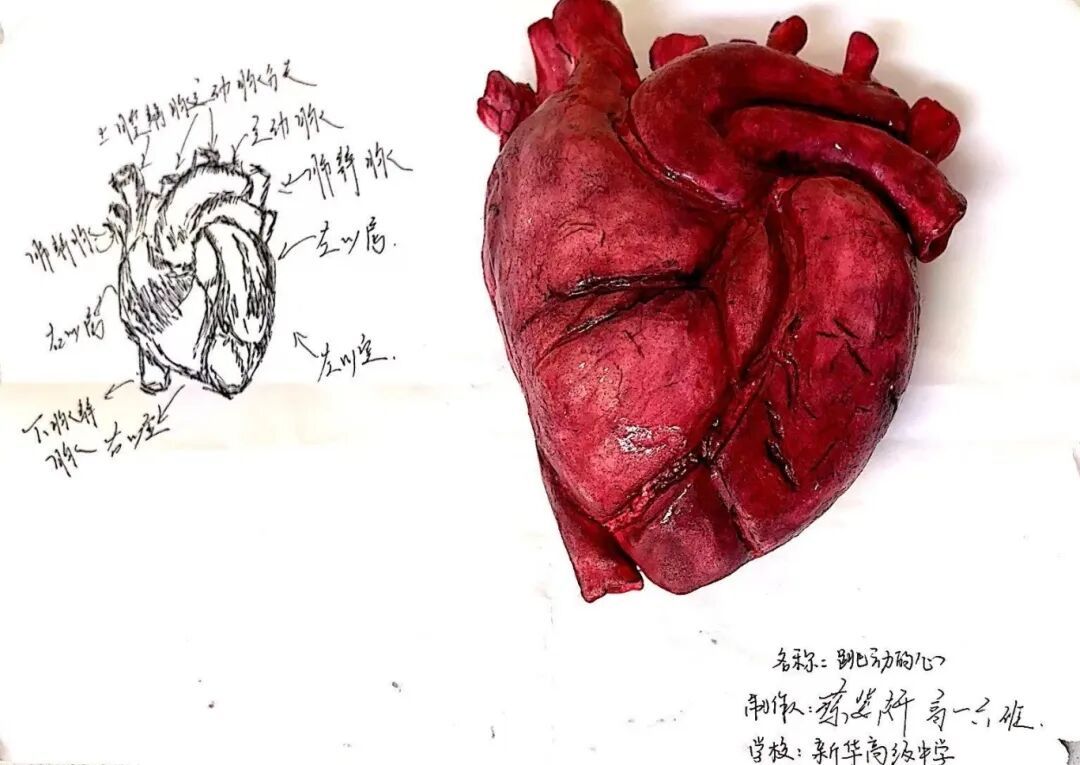 上腔静脉主动脉分支
主动脉
肺静脉
肺静脉
左心房.
右心房
左心室.
下腔静
脉 右心室
名称: 跳动的心
制作人: 高一六班.
学校: 新华高级中学